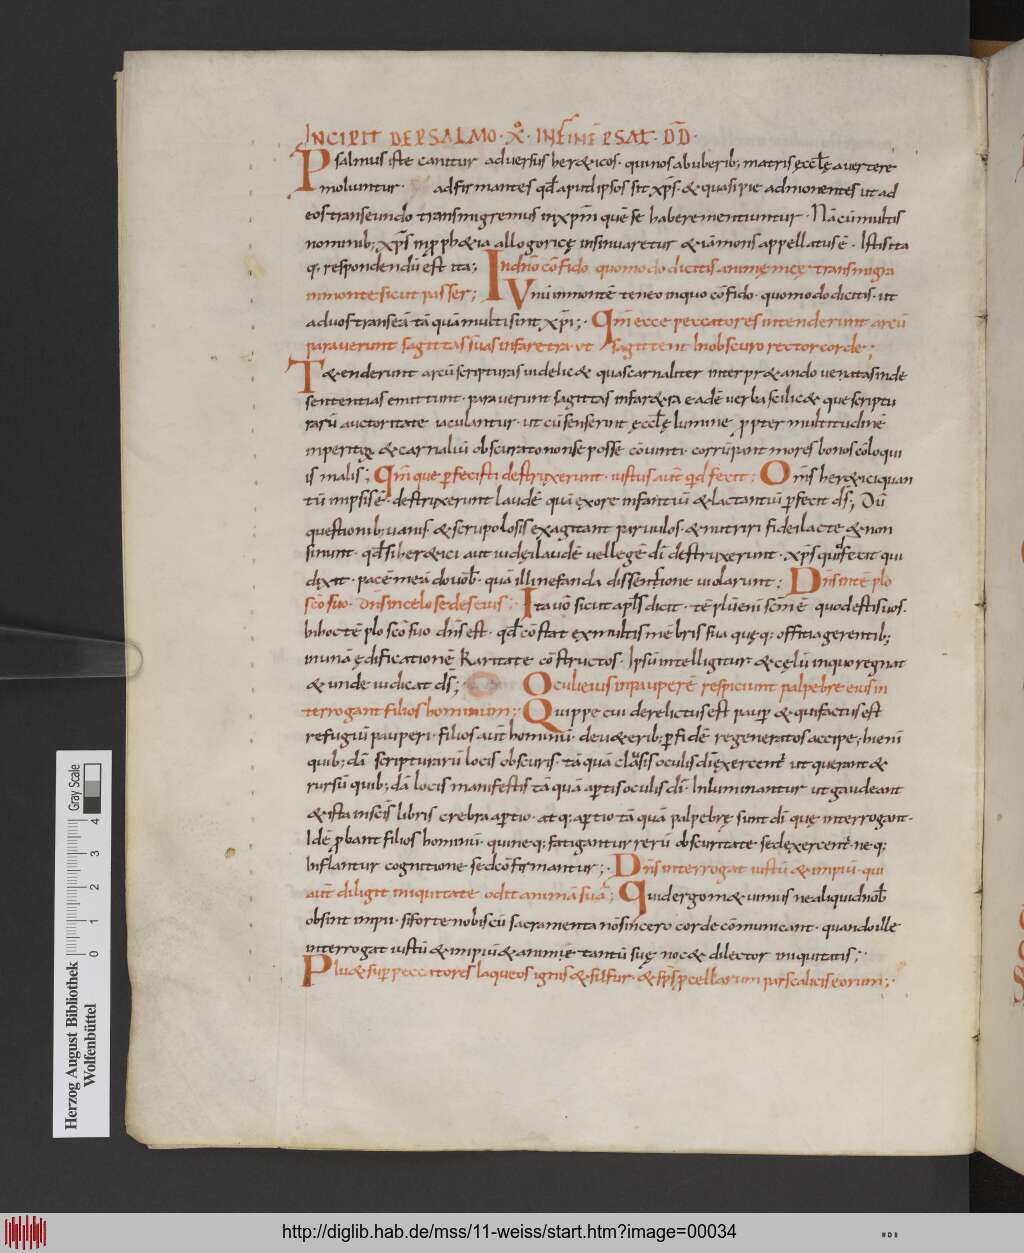 INCIPIT DE PSALMO · X̊ · IN FINĒ PSAL · DD̄ ·
Psalmus iste canitur adversus hereticos · qui nos ab uberib; matris ęccłę avertere
moluntur · adfirmantes qđ aput ipsos sit xp̄s · & quasi pie admonentes ut ad
eos transeundo transmigremus in xp̄m quē se habere mentiuntur · Nā cū multis
nominib; xp̄s in pph&ia allogoricę insinuaretur & iā mons appellatus ē · Istis ita
q; respondendū est ita; In dn̄o cōfido quomodo dicitis animę męę transmigra
in monte sicut passer; Unū montē teneo in quo cōfido · quomodo dicitis · ut
ad vos transeā tāquā multi sint xp̄i; · Qm̄ ecce peccatores intenderunt arcū
paraverunt sagittas suas in faretra · ut sagittent In obscuro rectos corde;
T&enderunt arcū scripturas videlic& quas carnaliter interpr&ando venatas inde
sententias emittunt · paraverunt sagittas in far&ra eadē verba scilic& que scriptu
rarū auctoritate iaculantur · ut cū senserint ęccłę lumine ppter multitudinē
inperitoꝝ & carnaliū obscurato non se posse cōvinci · corrūpant mores bonos cōloqui
is malis; Qm̄ que perfecisti destruxerunt · iustus aut̄ qd fecit; Om̄s her&ici quan
tū in ipsis ē · destruxerunt laudē quā ex ore infantiū & lactantiū perfecit dš; Dū
questionib; vanis · & scrupolosis exagitant parvulos · & nutriri fidei lacte & non
sinunt · qđ si her&ici aut iudęi laudē vel legē dī destruxerunt · xp̄s quid fecit qui
dixit · pacē meā do vob̄ · quā illi nefanda dissentione violarunt; Dn̄s in tēplo
sc̄o suo · dn̄s in celo sedes eius; Ita vō sicut apls dicit · tēplū enī sc̄m ē quod estis vos ·
In hoc tēplo sc̄o suo dn̄s est · qđ cōstat ex multis mēbris sua quęq; offitia gerentib;
in unā ędificationē karitate cōstructos · Ipsū intelligitur & cęlū in quo regnat
& unde iudicat dš; Oculi eius in pauperē respiciunt palpebre eius in
terrogant filios hominum; · Quippe cui derelictus est paup & qui factus est
refugiū pauperi · filios aut̄ hominū · de v&erib; p fidē regeneratos accipe; hi enī
quib;dā scripturarū locis obscuris · tāquā clausis oculis dī exercent̄ ut querant &
rursū quib;dā locis manifestis tāquā aptis oculis dī · Inluminantur ut gaudeant
& ista in scīs libris crebra aptio · atq; aptio tāquā palpebrę sunt dī quę interrogant ·
Idē pbant filios hominū · qui neq; fatigantur rerū obscuritate · sed exercent̄ · neq;
Inflantur cognitione sed cōfirmantur; · Dn̄s interrogat iustū & impiū · qui
aut̄ diligit iniquitate odit animā suā; Quid ergo m&uimus ne aliquid nob̄
obsint impii · si forte nobiscū sacramenta nō sincero corde cōmunicant · quando ille
interrogat iustū & impiū & animę tantū suę noc& dilector iniquitatis; ·
Plu& sup peccatores laqueos ignis & sulfur · & sp̄s pcellarum pars calicis eorum; ·
Herzog August Bibliothek
Wolfenbüttel
0 1 2 3 4
Gray Scale
http://diglib.hab.de/mss/11-weiss/start.htm?image=00034